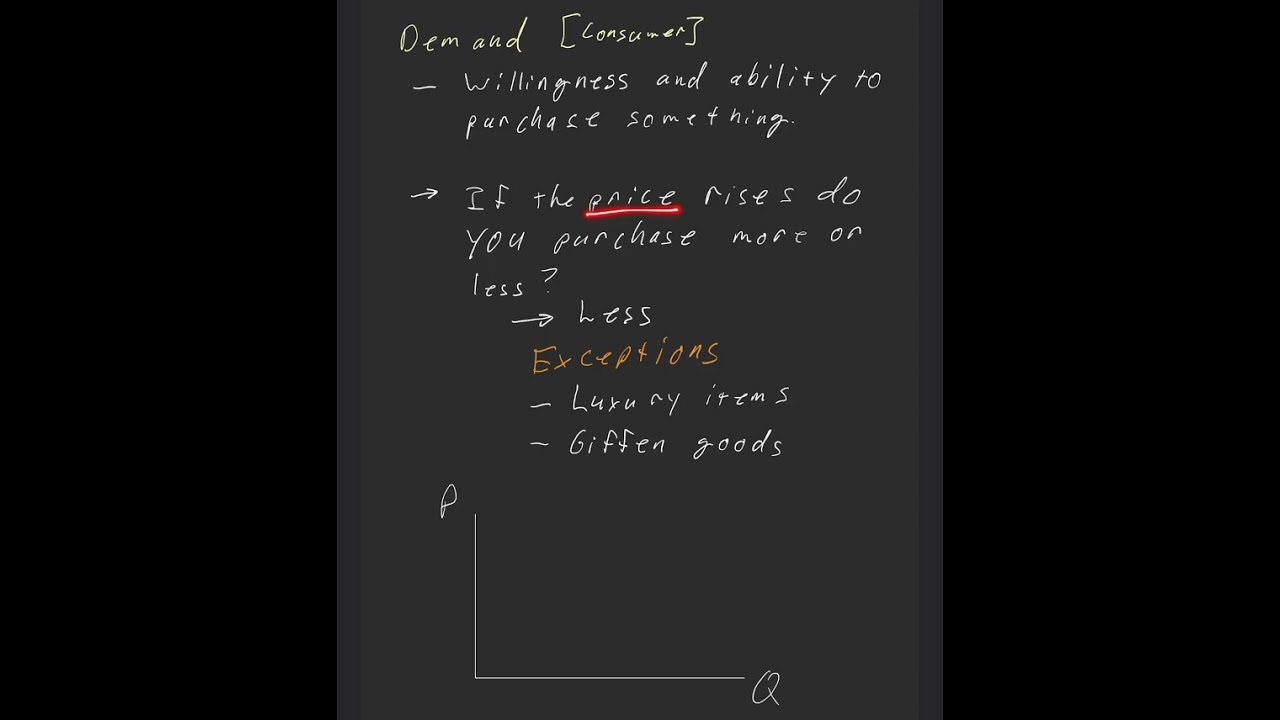 Demand [Consumer]
- Willingness and ability to
purchase something.
→ If the price rises do
you purchase more or
less?
→ Less
Exceptions
- Luxury items
- Giffen goods
P
Q